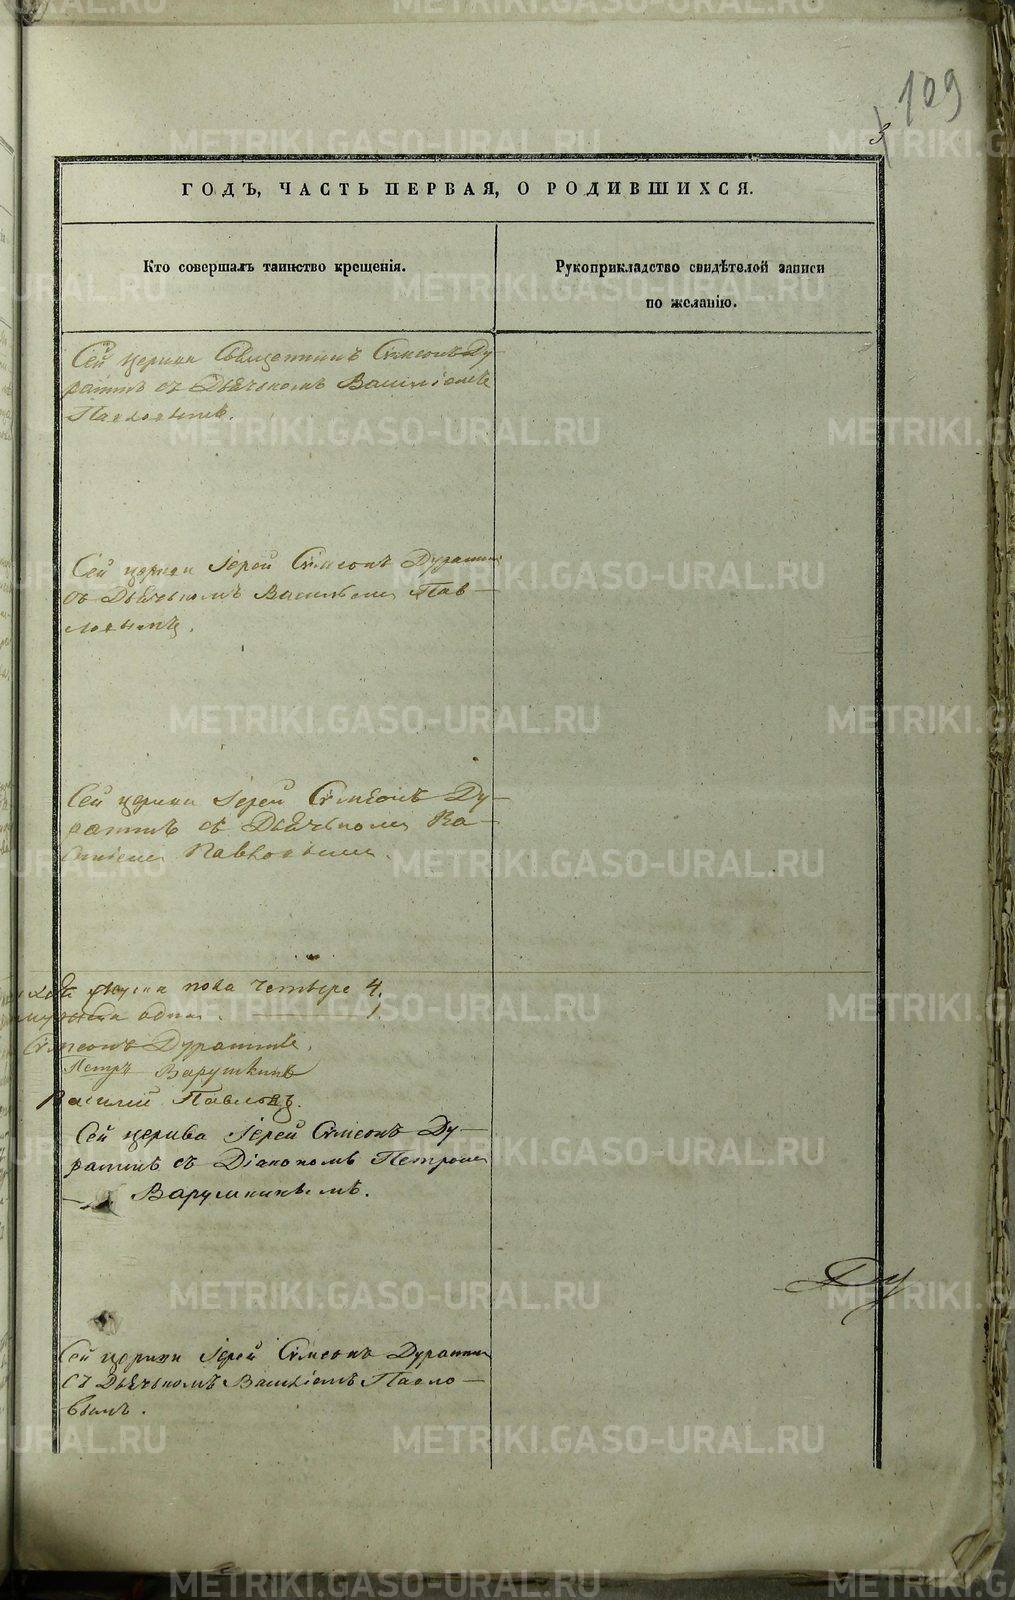 109
3
ГОДЪ, ЧАСТЬ ПЕРВАЯ, О РОДИВШИХСЯ.
Кто совершалъ таинство крещенія.
Рукоприкладство свидѣтелей записи
по желанію.
Сей церкви Священникъ Сѵмеонъ Ду-
ратинъ съ Дьячькомъ Василіемъ
Павловымъ.
Сей церкви Іерей Сѵмеонъ Дуратинъ
съ Дьячькомъ Василіемъ Пав-
ловымъ.
Сей церкви Іерей Сѵмеонъ Ду-
ратинъ съ Дьячькомъ Ва-
силіемъ Павловымъ.
пола четыре 4.
одна 1.
Сѵмеонъ Дуратинъ.
Петръ Варушкинъ
Василій Павловъ.
Сей церкви Іерей Сѵмеонъ Ду-
ратинъ съ Діакономъ Петромъ
Варушкинымъ.
Ду
Сей церкви Іерей Сѵмеонъ Дуратинъ
съ Дьячькомъ Василіемъ Павло-
вымъ.
METRIKI.GASO-URAL.RU